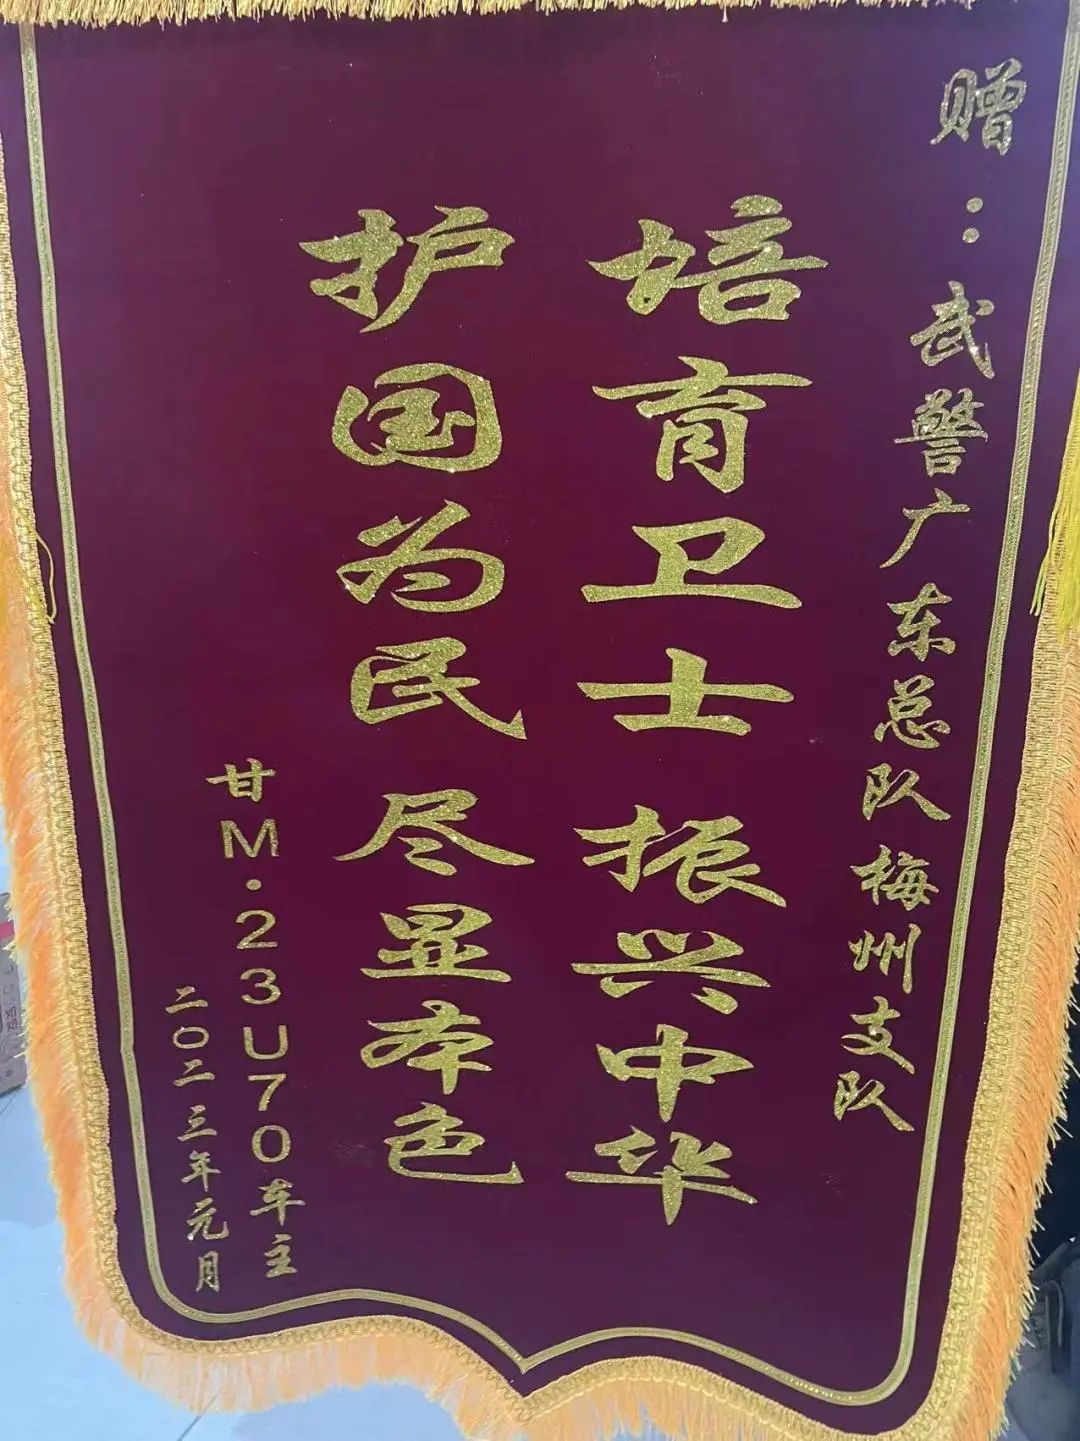 赠：武警广东总队梅州支队
培育卫士 振兴中华
护国为民 尽显本色
甘M·23U70车主
二〇二三年元月